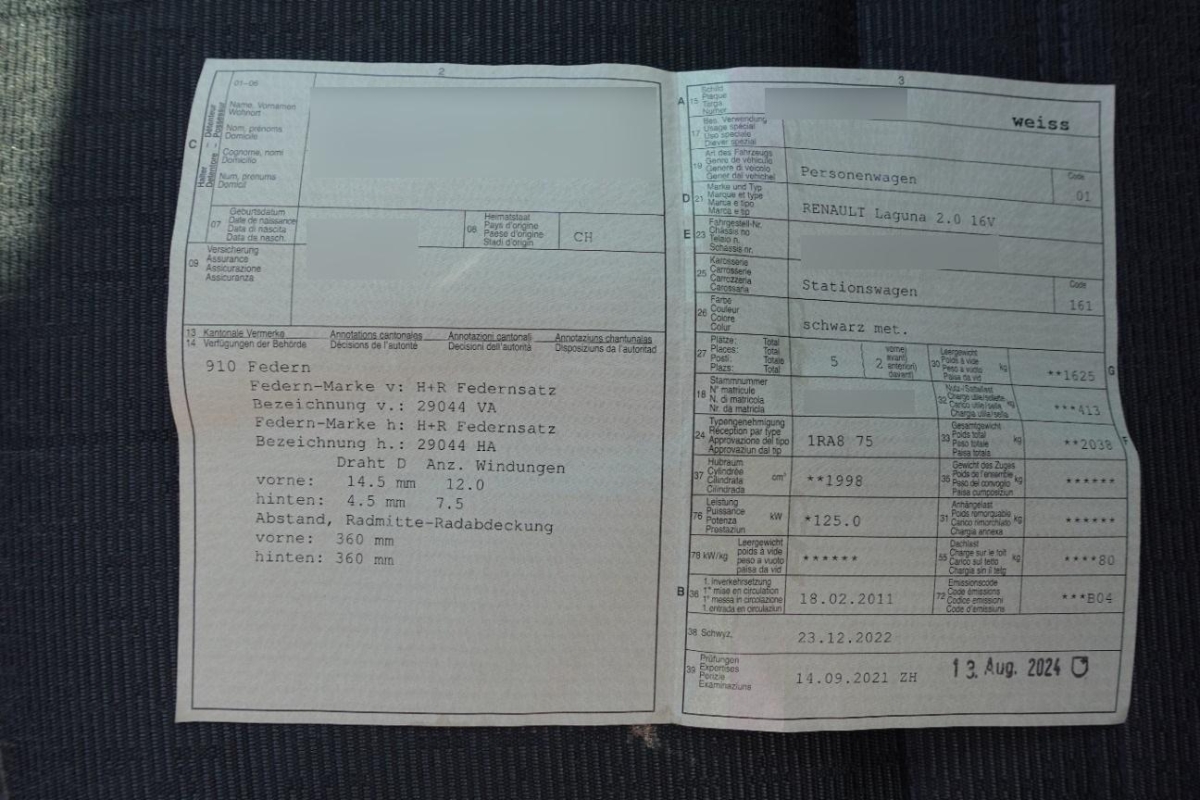 2
01-06
C
Halter - Détenteur
Detentore - Possessur
Name, Vornamen
Wohnort
Nom, prénoms
Domicile
Cognome, nomi
Domicilio
Num, prenums
Domicil
07
Geburtsdatum
Date de naissance
Data di nascita
Data da nasch.
08
Heimatstaat
Pays d'origine
Paese d'origine
Stadi d'origin
CH
09
Versicherung
Assurance
Assicurazione
Assicuranza
13 Kantonale Vermerke Annotations cantonales Annotazioni cantonali Annotaziuns chantunalas
14 Verfügungen der Behörde Décisions de l'autorité Decisioni dell'autorità Disposiziuns da l'autoritad
910 Federn
Federn-Marke v: H+R Federnsatz
Bezeichnung v.: 29044 VA
Federn-Marke h: H+R Federnsatz
Bezeichnung h.: 29044 HA
Draht D Anz. Windungen
vorne: 14.5 mm 12.0
hinten: 4.5 mm 7.5
Abstand, Radmitte-Radabdeckung
vorne: 360 mm
hinten: 360 mm
3
A 15
Schild
Plaque
Targa
Numer
weiss
17
Bes. Verwendung
Usage spécial
Uso speciale
Diever spezial
19
Art des Fahrzeugs
Genre de véhicule
Genere di veicolo
Gener dal vehichel
Personenwagen
Code
01
D 21
Marke und Typ
Marque et type
Marca e tipo
Marca e tip
RENAULT Laguna 2.0 16V
E 23
Fahrgestell-Nr.
Châssis no
Telaio n.
Schassis nr.
25
Karosserie
Carrosserie
Carrozzeria
Carossaria
Stationswagen
Code
161
26
Farbe
Couleur
Colore
Colur
schwarz met.
27
Plätze: Total
Places: Total
Posti: Totale
Plazs: Total
5
2
vorne)
avant)
anteriori)
davant)
30
Leergewicht
Poids à vide
Peso a vuoto
Paisa da vid
kg
**1625
G
18
Stammnummer
N° matricule
N. di matricola
Nr. da matricla
32
Nutz-/Sattellast
Charge utile/sellette
Carico utile/sella
Chargia utila/sella
kg
***413
24
Typengenehmigung
Réception par type
Approvazione del tipo
Approvaziun dal tip
1RA8 75
33
Gesamtgewicht
Poids total
Peso totale
Paisa totala
kg
**2038
F
37
Hubraum
Cylindrée
Cilindrata
Cilindrada
cm³
**1998
35
Gewicht des Zuges
Poids de l'ensemble
Peso del convoglio
Paisa cumposiziun
kg
******
76
Leistung
Puissance
Potenza
Prestaziun
kW
*125.0
31
Anhängelast
Poids remorquable
Carico rimorchiato
Chargia annexa
kg
******
78 kW/kg
Leergewicht
poids à vide
peso a vuoto
paisa da vid
******
55
Dachlast
Charge sur le toit
Carico sul tetto
Chargia sin il tetg
kg
****80
B 36
1. Inverkehrsetzung
1re mise en circulation
1a messa in circolazione
1. entrada en circulaziun
18.02.2011
72
Emissionscode
Code émissions
Codice emissioni
Code d'emissiuns
***B04
38 Schwyz,
23.12.2022
39
Prüfungen
Expertises
Perizie
Examinaziuns
14.09.2021 ZH
13. Aug. 2024